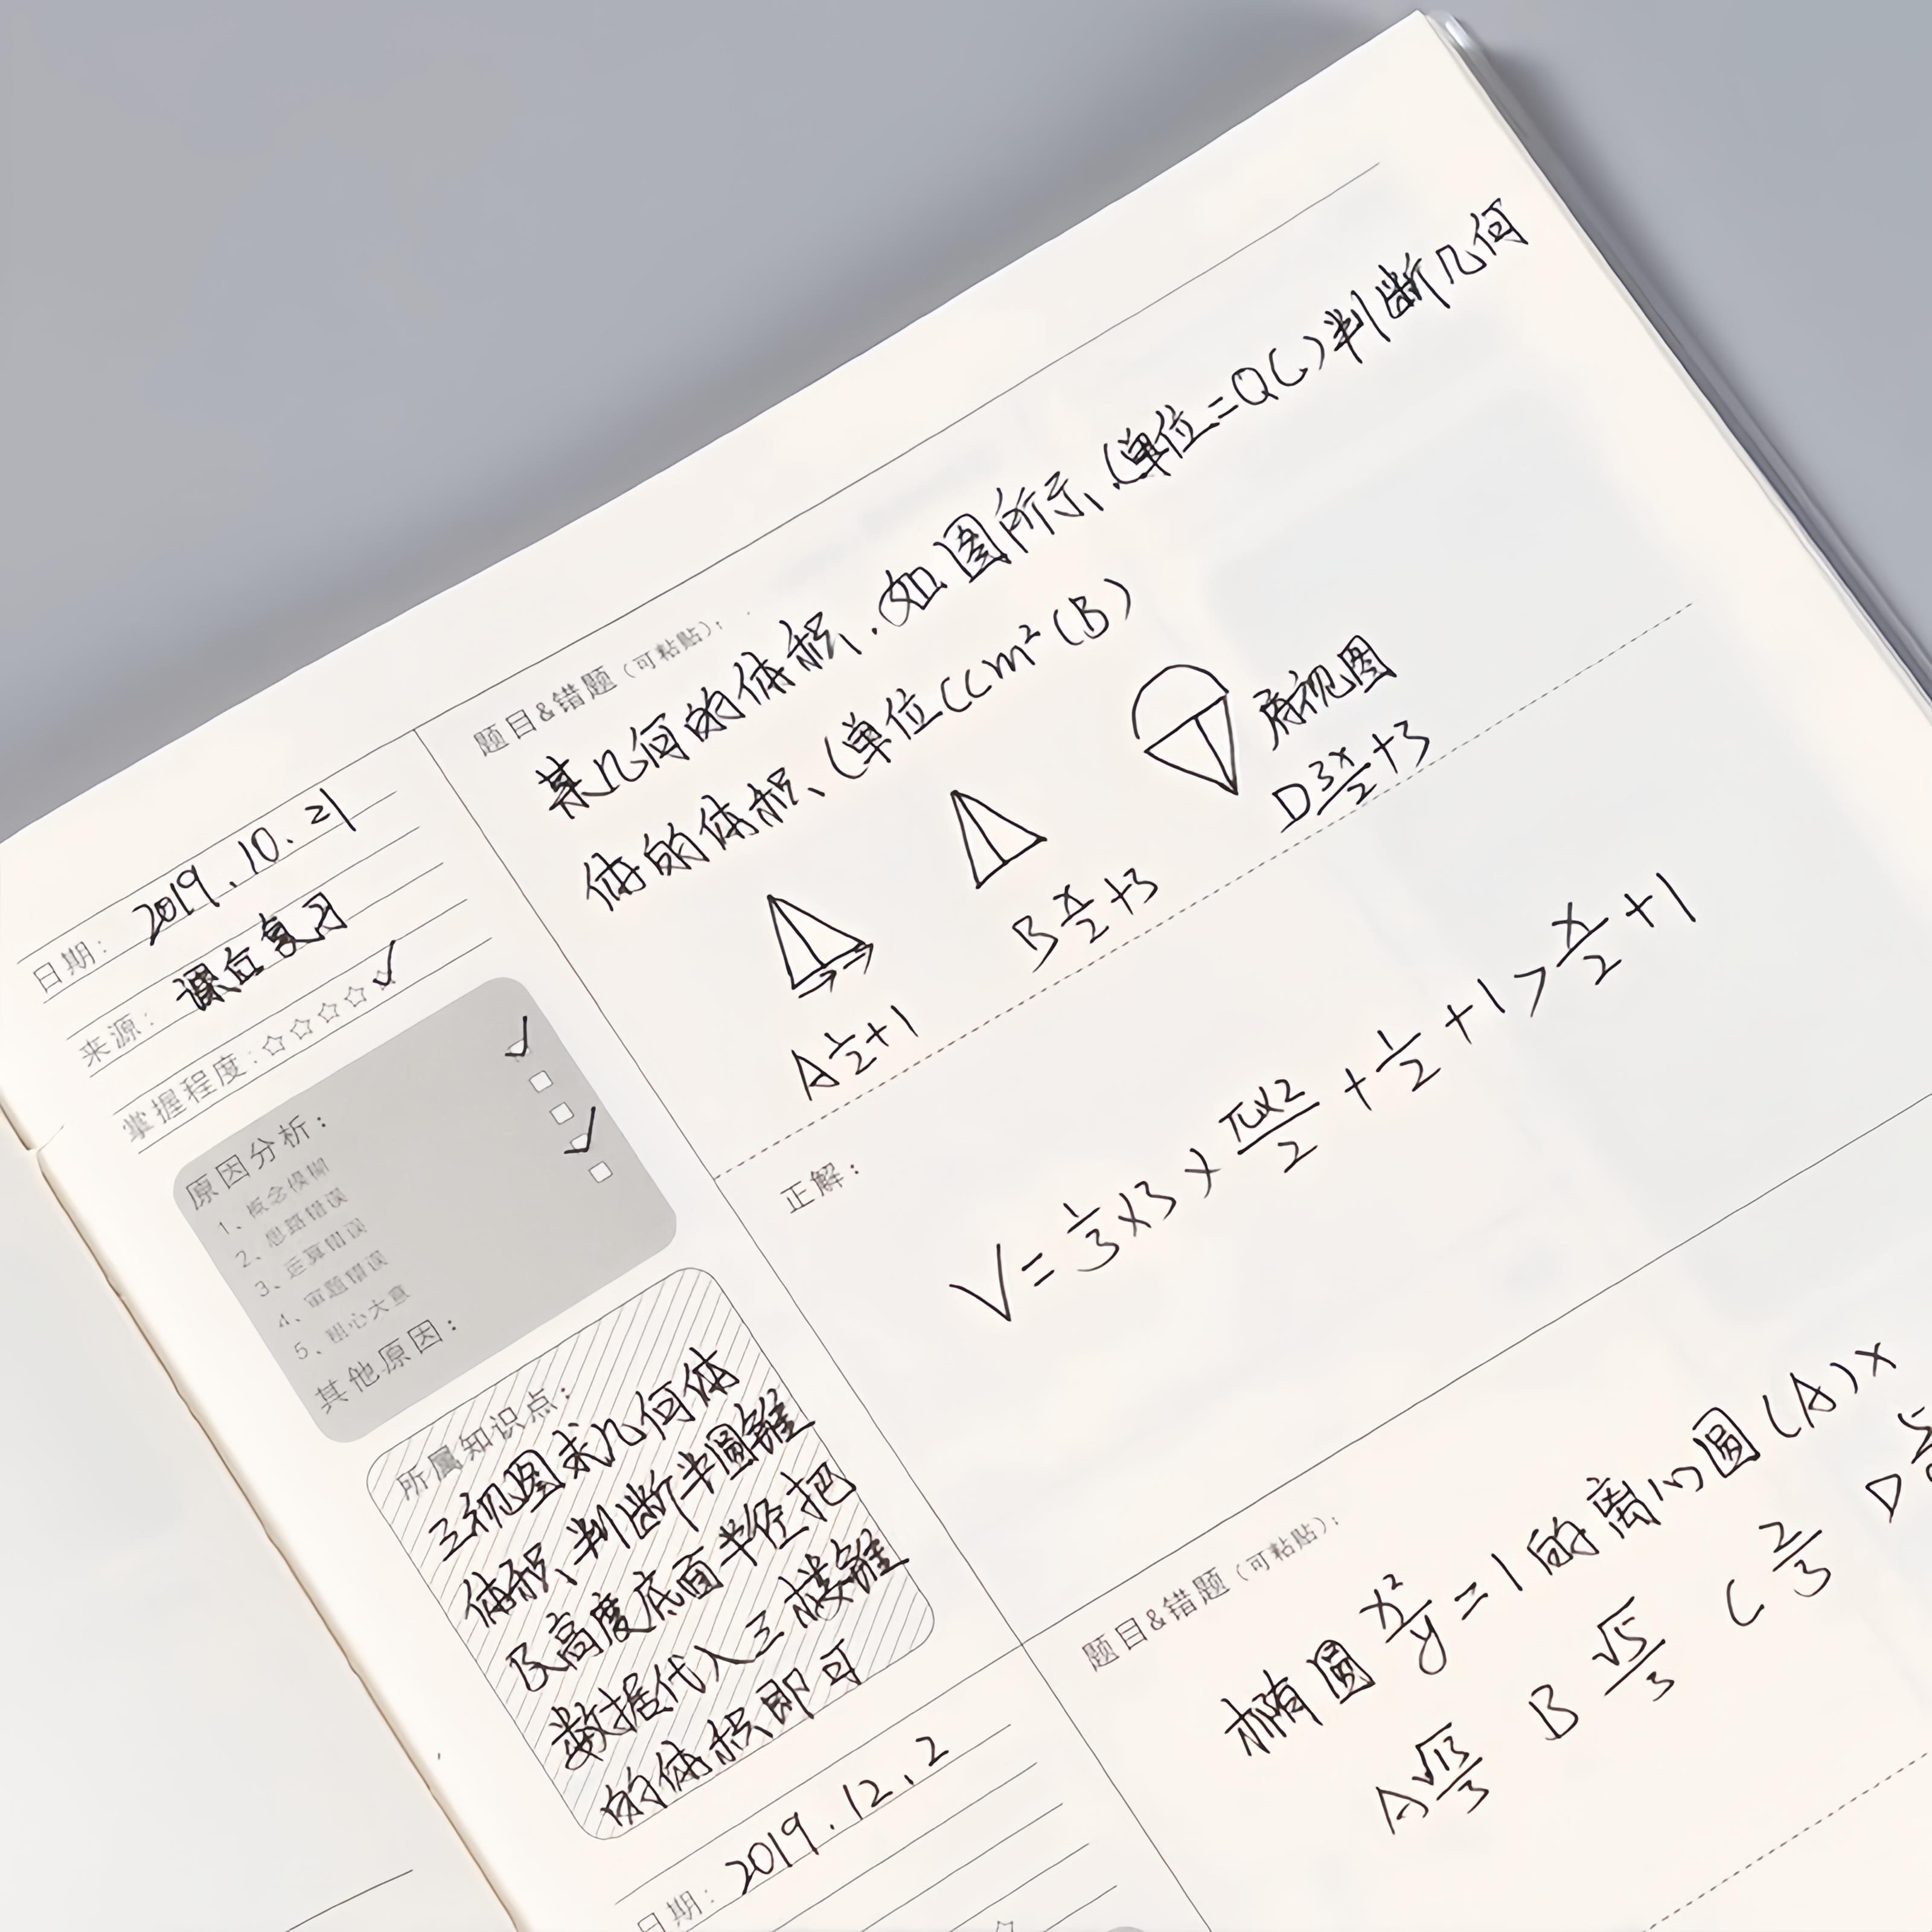 日期: 2019.10.21
来源: 课位复习
掌握程度:☆☆☆☆☆ ✓
原因分析:
1、概念模糊 ✓
2、思路错误 □
3、运算错误 □
4、审题错误 ✓
5、粗心大意 □
其他原因:
所属知识点:
三视图求几何体
体积、判断半圆锥
及高度底面半径把
数据代入三棱锥
的体积即可
题目&错题(可粘贴):
某几何的体积.如图所示、(单位=QC)判断几何
体的体积、(单位CCm² (B)
俯视图
A ½+1
B x/2 +3
D 3x/2 +3
正解:
V = 1/3 ×3 × πx×2/2 + 1/2 +1 > x/2 +1
日期: 2019.12.2
题目&错题(可粘贴):
椭圆 x²/y =1 的离心圆 (A) x
A √13/3 B √5/3 C 2/3 D